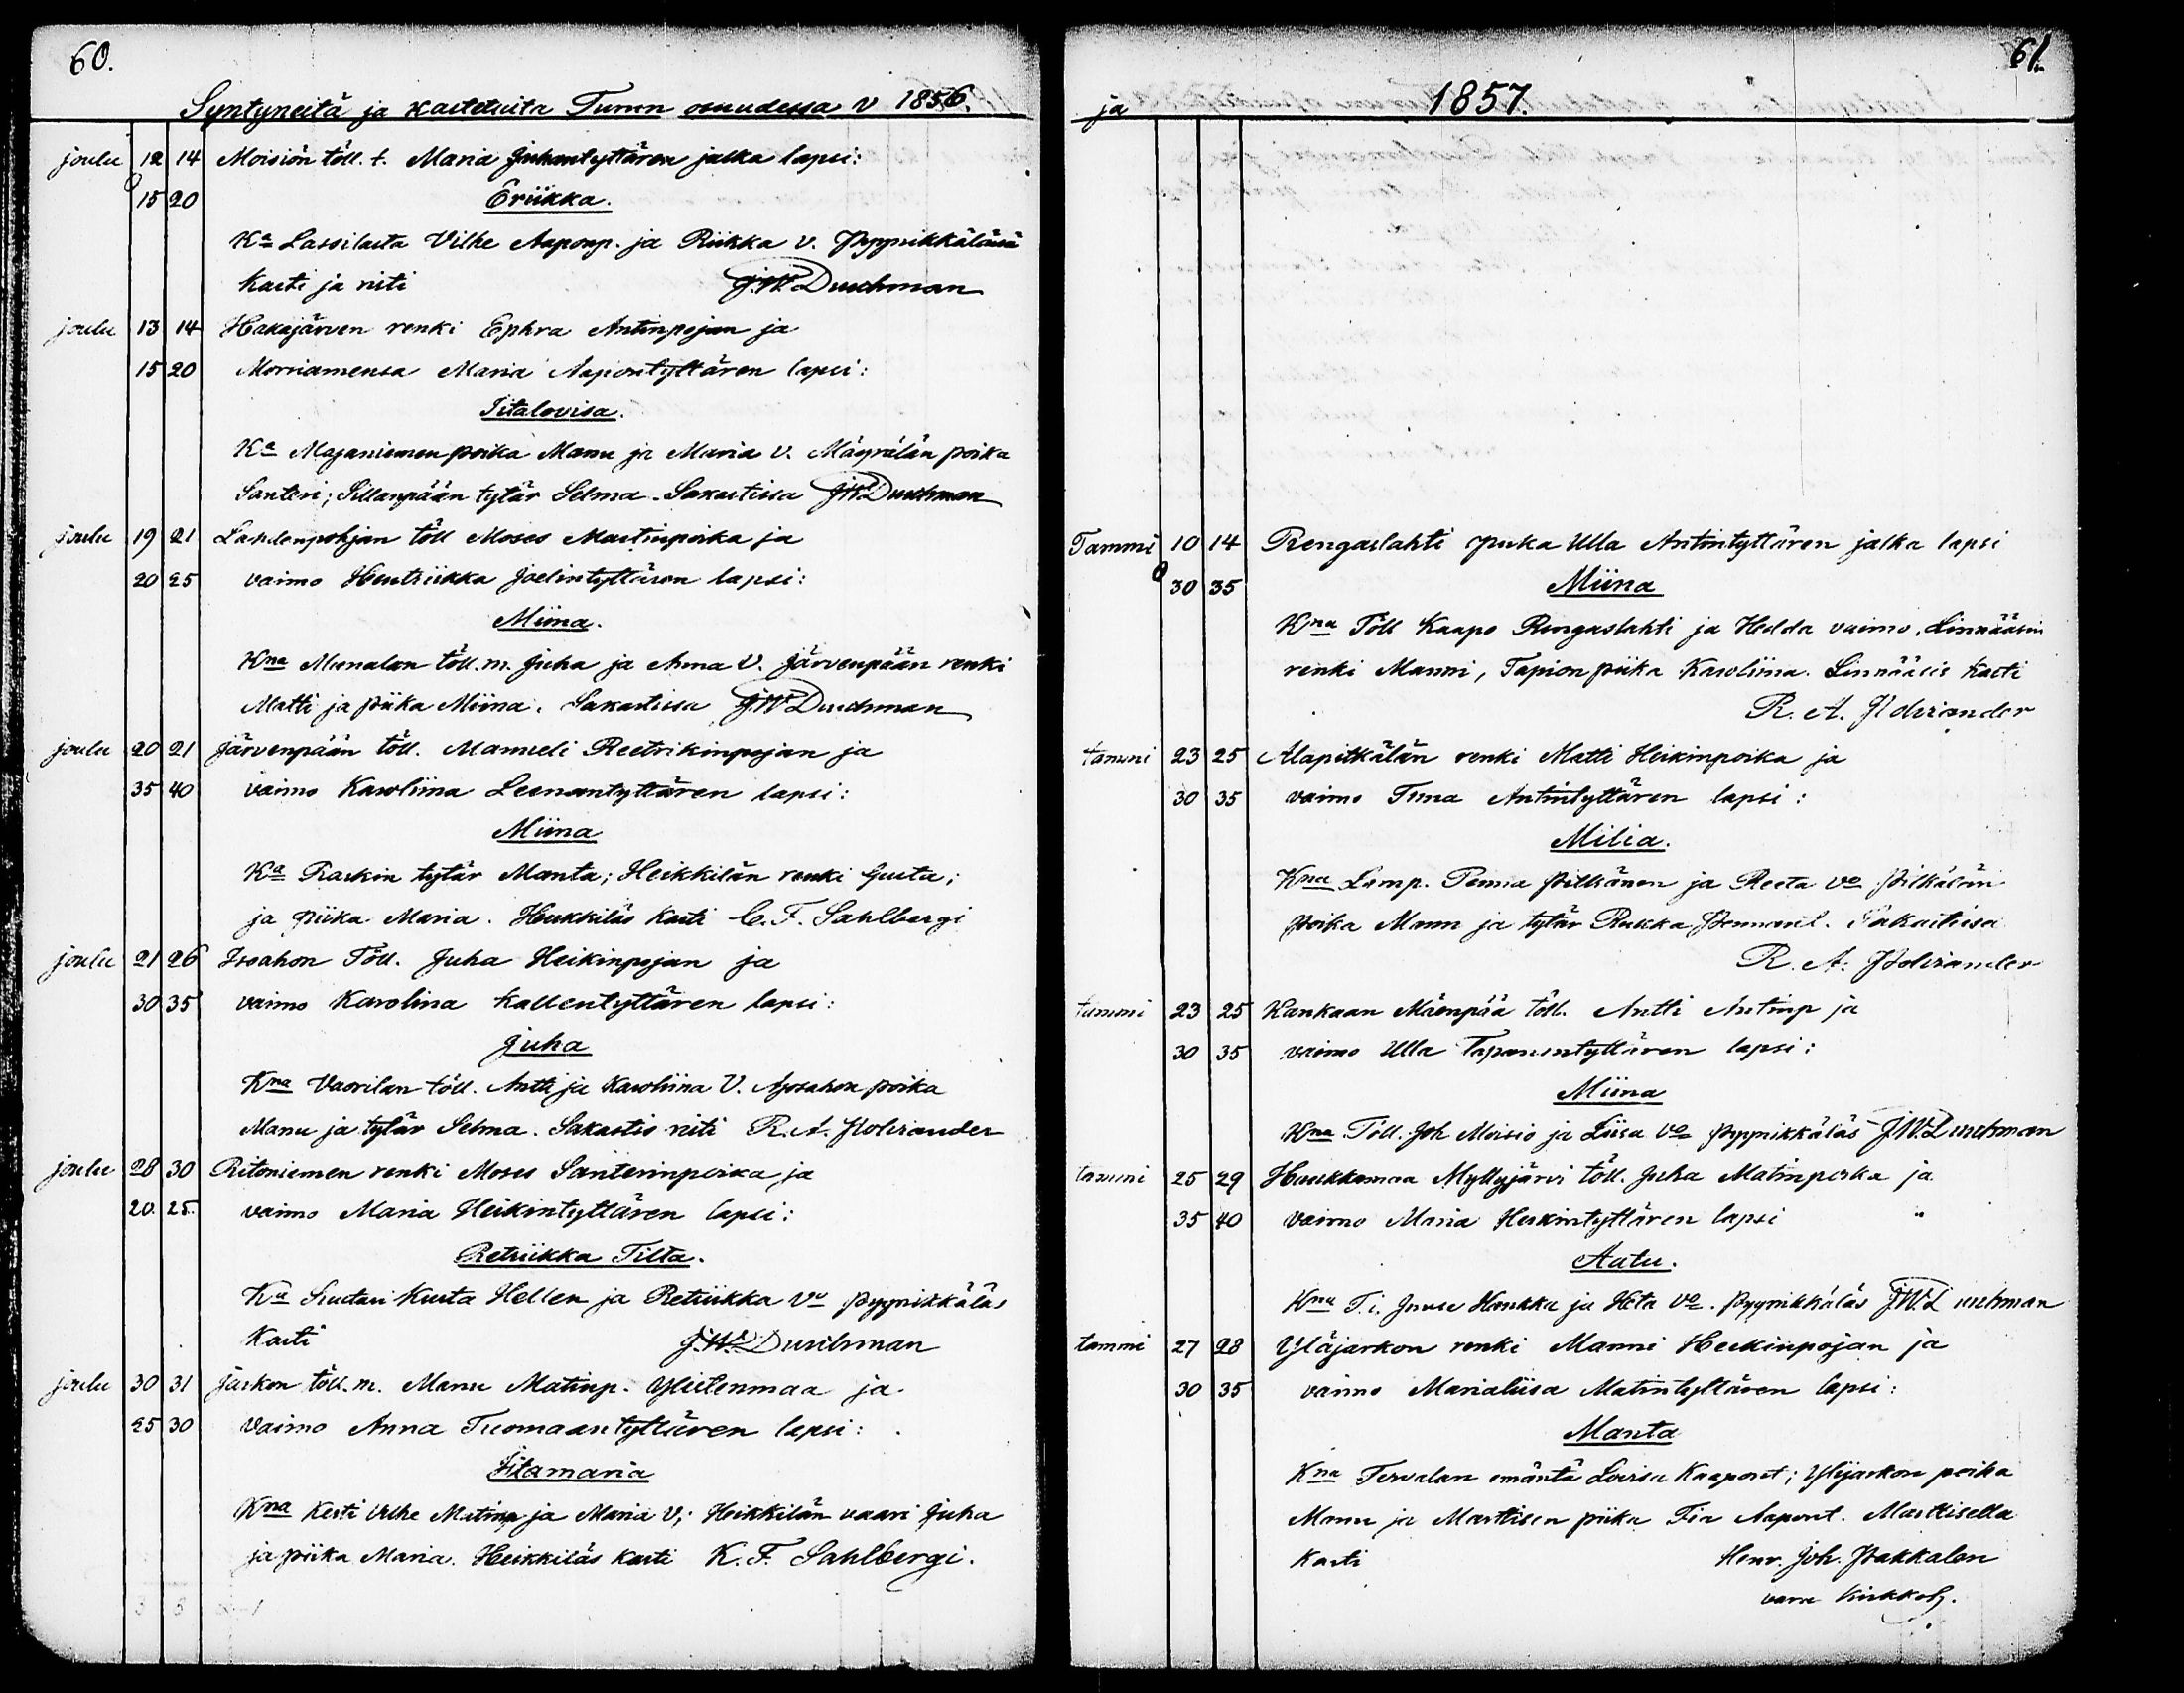 60.
Syntyneitä ja kastetuita Turun osuudessa v 1856.
joulu 12 14 Moision töll. t. Maria Juhantyttären jalka lapsi:
15 20 Eriikka.
Ka Lassilasta Vilhe Aaponp. ja Riikka v. Pyynikkälässä
kasti ja risti J.W. Durchman
joulu 13 14 Hakajärven renki Ephra Antinpojan ja
15 20 Morriamensa Maria Aapontyttären lapsi:
Iitalovisa.
Ka Majaniemen poika Manu ja Maria v. Mäyrälän poika
Santeri; Sillanpään tytär Selma. Sakastissa J.W. Durchman
joulu 19 21 Lahdenpohjan töll Moses Martinpoika ja
20 25 vaimo Hentriikka Joelintyttären lapsi:
Miina.
Kna Munalan töll. m. Juha ja Anna V. Järvenpään renki
Matti ja piika Miina. Sakastissa J.W. Durchman
joulu 20 21 Järvenpään töll. Manueli Reetrikinpojan ja
35 40 vaimo Karoliina Leenantyttären lapsi:
Miina
Ka Raskin tytär Manta; Heikkilän renki Gusta;
ja piika Maria. Heikkiläs kasti C. F. Sahlbergi
joulu 21 26 Isoahon Töll. Juha Heikinpojan ja
30 35 vaimo Karolina Kallentyttären lapsi:
Juha
Kna Vaorilan töll. Antti ja Karoliina V. poika
Manu ja tytär Selma. Sakastis risti R. A. Holvander
joulu 28 30 Ritoniemen renki Moses Santerinpoika ja
20. 25. vaimo Maria Heikintyttären lapsi:
Retriikka Tilta.
Ka Suutari Kusta Hellen ja Retriikka vo pyynikkäläs
Kasti J.W. Durchman
joulu 30 31 Jaskon töll. m. Manu Matinp. Yliitenmaa ja
25 30 vaimo Anna Tuomaantyttären lapsi:
Iitamaria
Kna Kesti Vilhe Matinp ja Maria V; Heikkilän vaari Juha
ja piika Maria. Heikkiläs kasti K. F. Sahlbergi.
61.
ja 1857.
Tammi 10 14 Rengaslahti piika Ulla Antintyttären jalka lapsi
30 35 Miina
Kna Töll Kaapo Rengaslahti ja Hedda vaimo, Linnääsin
renki Manni, Tapion piika Karoliina. Linnääsis kasti
R. A. Holvander
tammi 23 25 Alapitkälän renki Matti Heikinpoika ja
30 35 vaimo Tiina Antintyttären lapsi:
Milia.
Kna Lamp. Penna Pitkänen ja Reeta vo Pitkälän
poika Mann ja tytär Riikka Pennant. Sakastissa
R. A. Holvander
tammi 23 25 Kankaan Mäenpää töll. Antti Antinp ja
30 35 vaimo Ulla Tapanintyttären lapsi:
Miina
Kna Töll. Joh Moisio ja Liisa vo pyynikkäläs J.W. Durchman
tammi 25 29 Haukkamaa Myllyjärvi töll. Juha Matinpoika ja
35 40 vaimo Maria Heikintyttären lapsi "
Aatu.
Kna T. i. Juuse Haukka ja Heta vo. pyynikkäläs J.W. Durchman
tammi 27 28 Yläjaskon renki Manni Heikinpojan ja
30 35 vaimo Marialiisa Matintyttären lapsi:
Manta
Kna Tervalan emäntä Lovisa Kaapont; Ylijaskon poika
Manu ja Marttisen piika Fia Aapont. Marttisella
kasti Henr. Joh. Pakkalen
varra Kirkkoh.